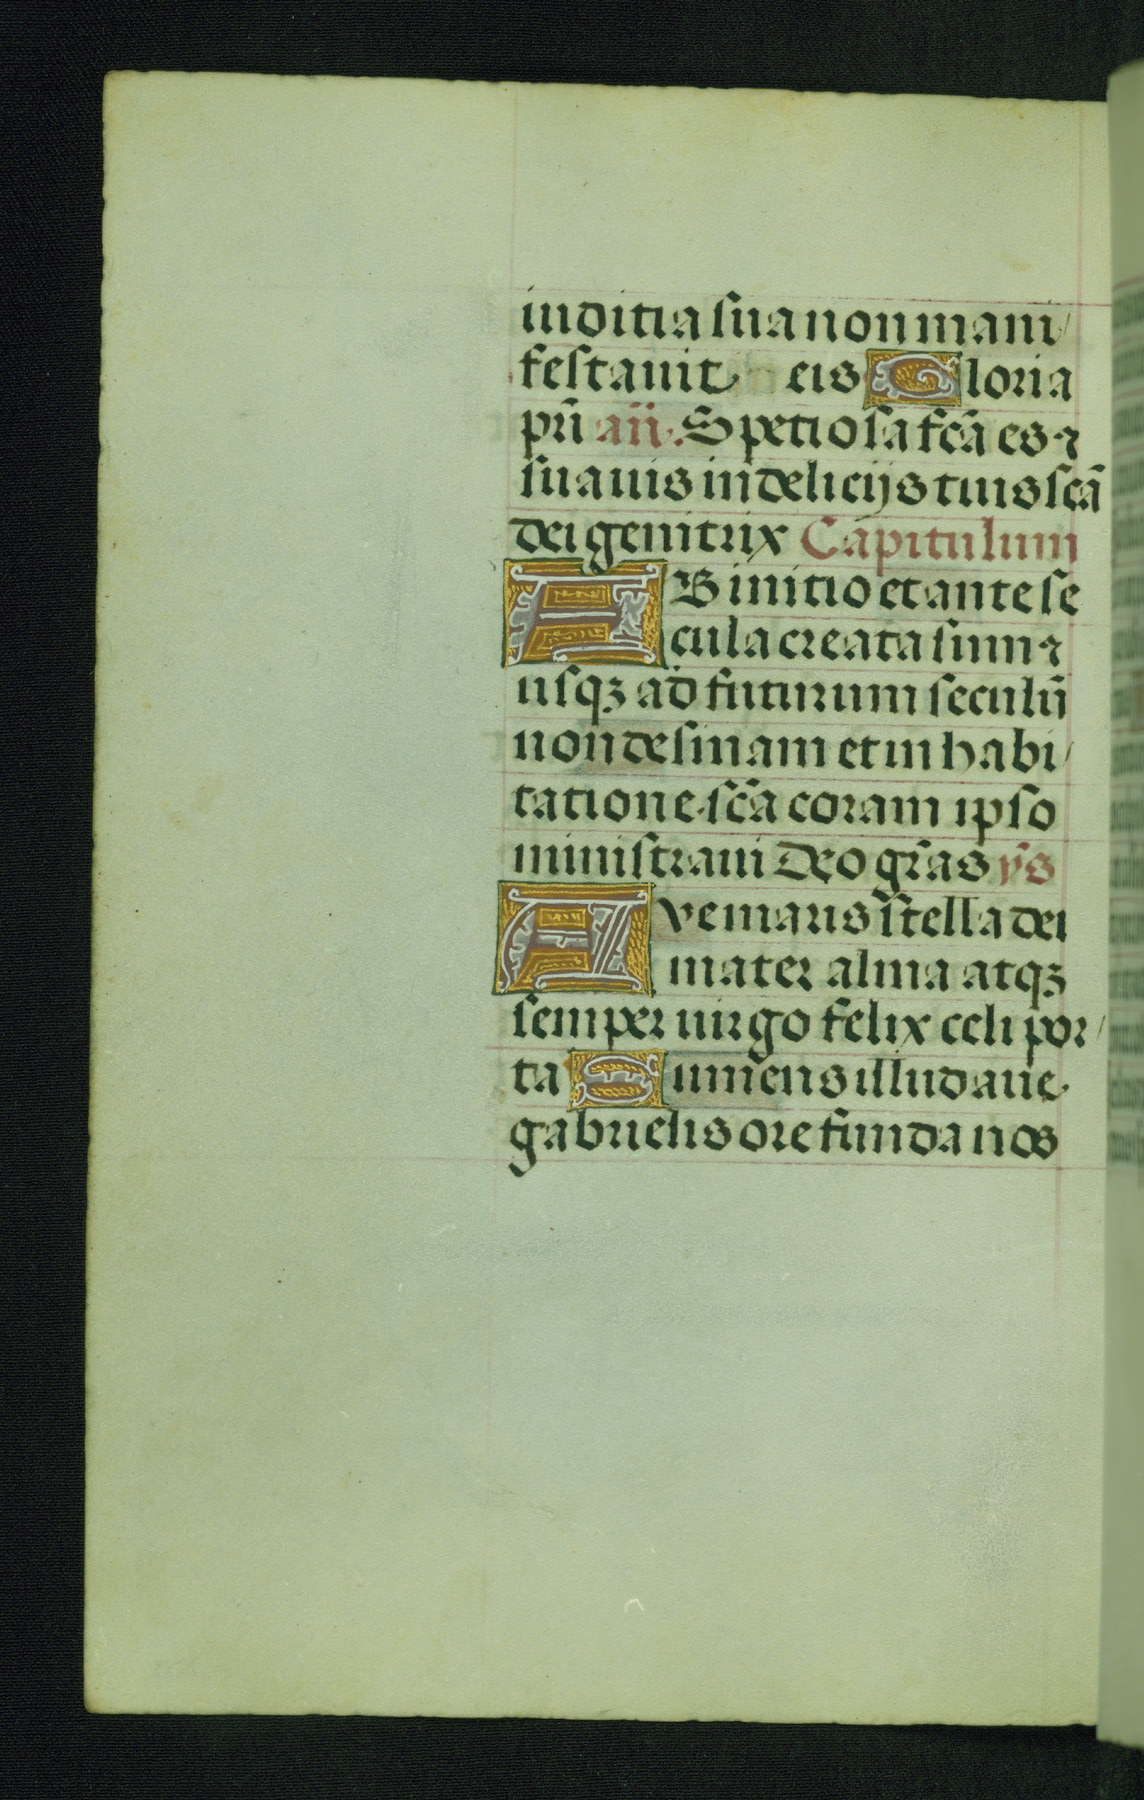 iuditia sua non mani/
festauit eis Gloria
pr̃i añ. Spetiosa fc̃a es ⁊
suauis in delicijs tuis sc̃a
dei genitrix Capitulum
AB initio et ante se
cula creata sum ⁊
usqꝫ ad futurum seculũ
non desinam et in habi/
tatione sc̃a coram ipso
ministraui Deo gr̃as ẏs
Ave maris stella dei
mater alma atqꝫ
semper uirgo felix celi por/
ta Summens illud aue
gabrielis ore funda nos